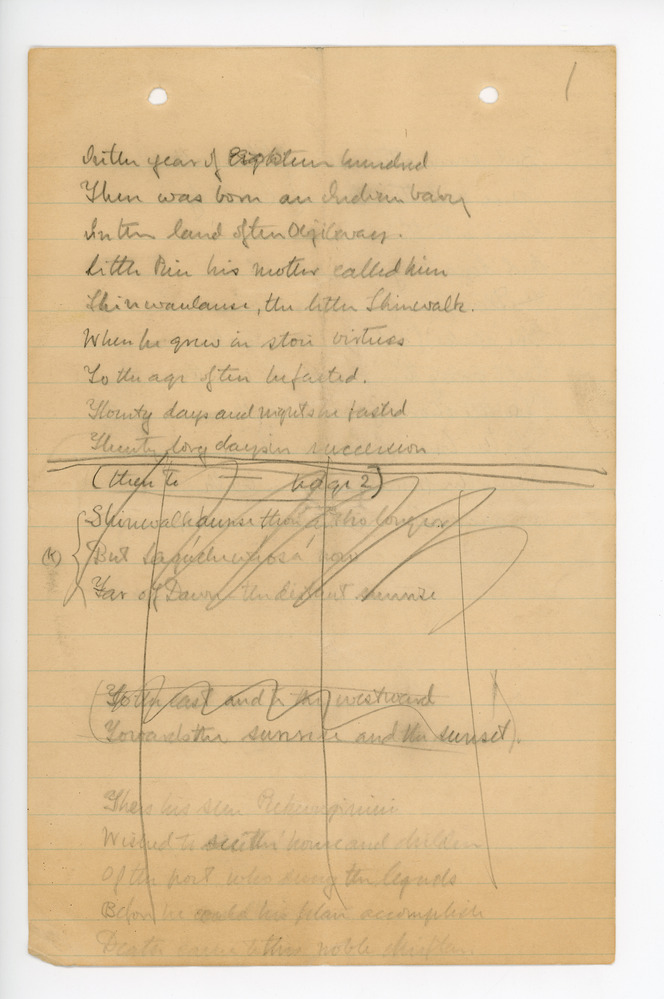 1
In the year of Eighteen hundred
There was born an Indian baby
In the land of the Ojibeway.
Little Pine his mother called him
Shinwaulause, the little Shinwalk.
When he grew in stoic virtues
To the age of ten he fasted.
Twenty days and nights he fasted
Twenty long days in succession
(then to — page 2)
Shinwalkaunse then a
But now
Far off Dawn the distant sunrise
To the east and to the westward
Towards the sunrise and the sunset).
his son
Wished to see the home and children
Of the poet who sung the legends
Before he could his plan accomplish
Death came to this noble chieftain.